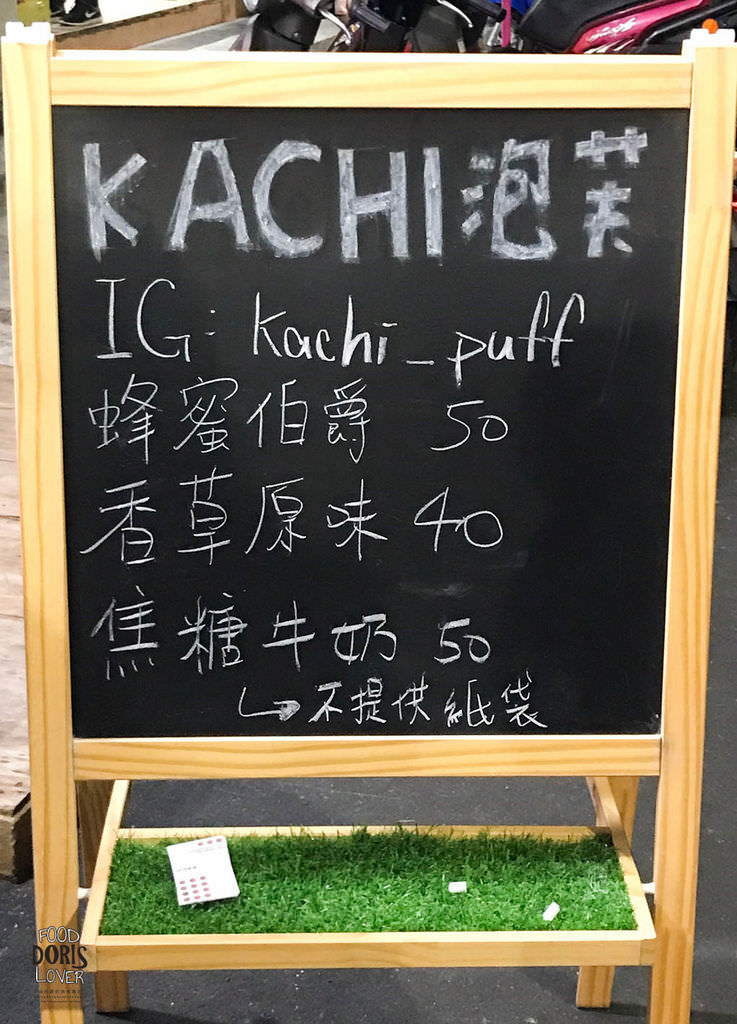 KACHI泡芙
IG: kachi_puff
蜂蜜伯爵 50
香草原味 40
焦糖牛奶 50
↳不提供紙袋
FOOD
DORIS
LOVER